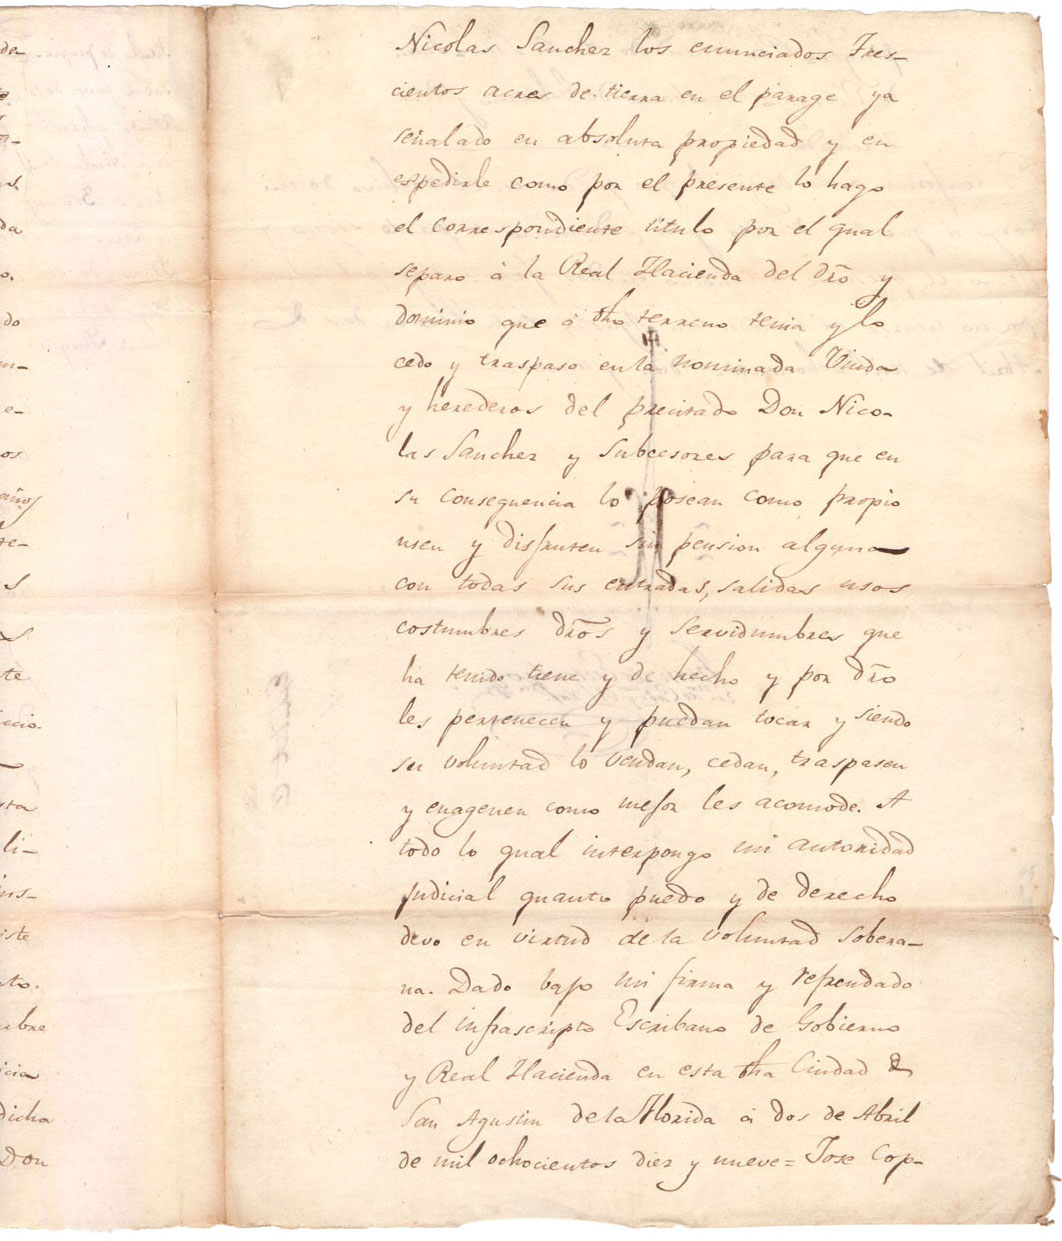 Nicolas Sanchez los enunciados Tres-
cientos acres de tierra en el parage ya
señalado en absoluta propiedad y en
espedirle como por el presente lo hago
el correspondiente titulo por el qual
separo á la Real Hacienda del dr̃o y
dominio que á dh̃o terreno tenia y lo
cedo y traspaso en la nominada Viuda
y herederos del precitado Don Nico-
las Sanchez y subcesores para que en
su consequencia lo posean como propio
usen y disfruten sin pension alguna
con todas sus entradas, salidas usos
costumbres dr̃os y servidumbres que
ha tenido tiene y de hecho y por dr̃o
les pertenecen y puedan tocar y siendo
su voluntad lo vendan, cedan, traspasen
y enagenen como mejor les acomode. A
todo lo qual interpongo mi autoridad
judicial quanto puedo y de derecho
devo en virtud de la voluntad sobera-
na. Dado bajo mi firma y refrendado
del infrascripto Escribano de Gobierno
y Real Hacienda en esta dh̃a Ciudad de
San Agustin de la Florida á dos de Abril
de mil ochocientos diez y nueve = Jose Cop-
de-
da
o.
do
e-
os
años
te-
s
te
icio.
li-
iste
mbre
icia
dicha
Don